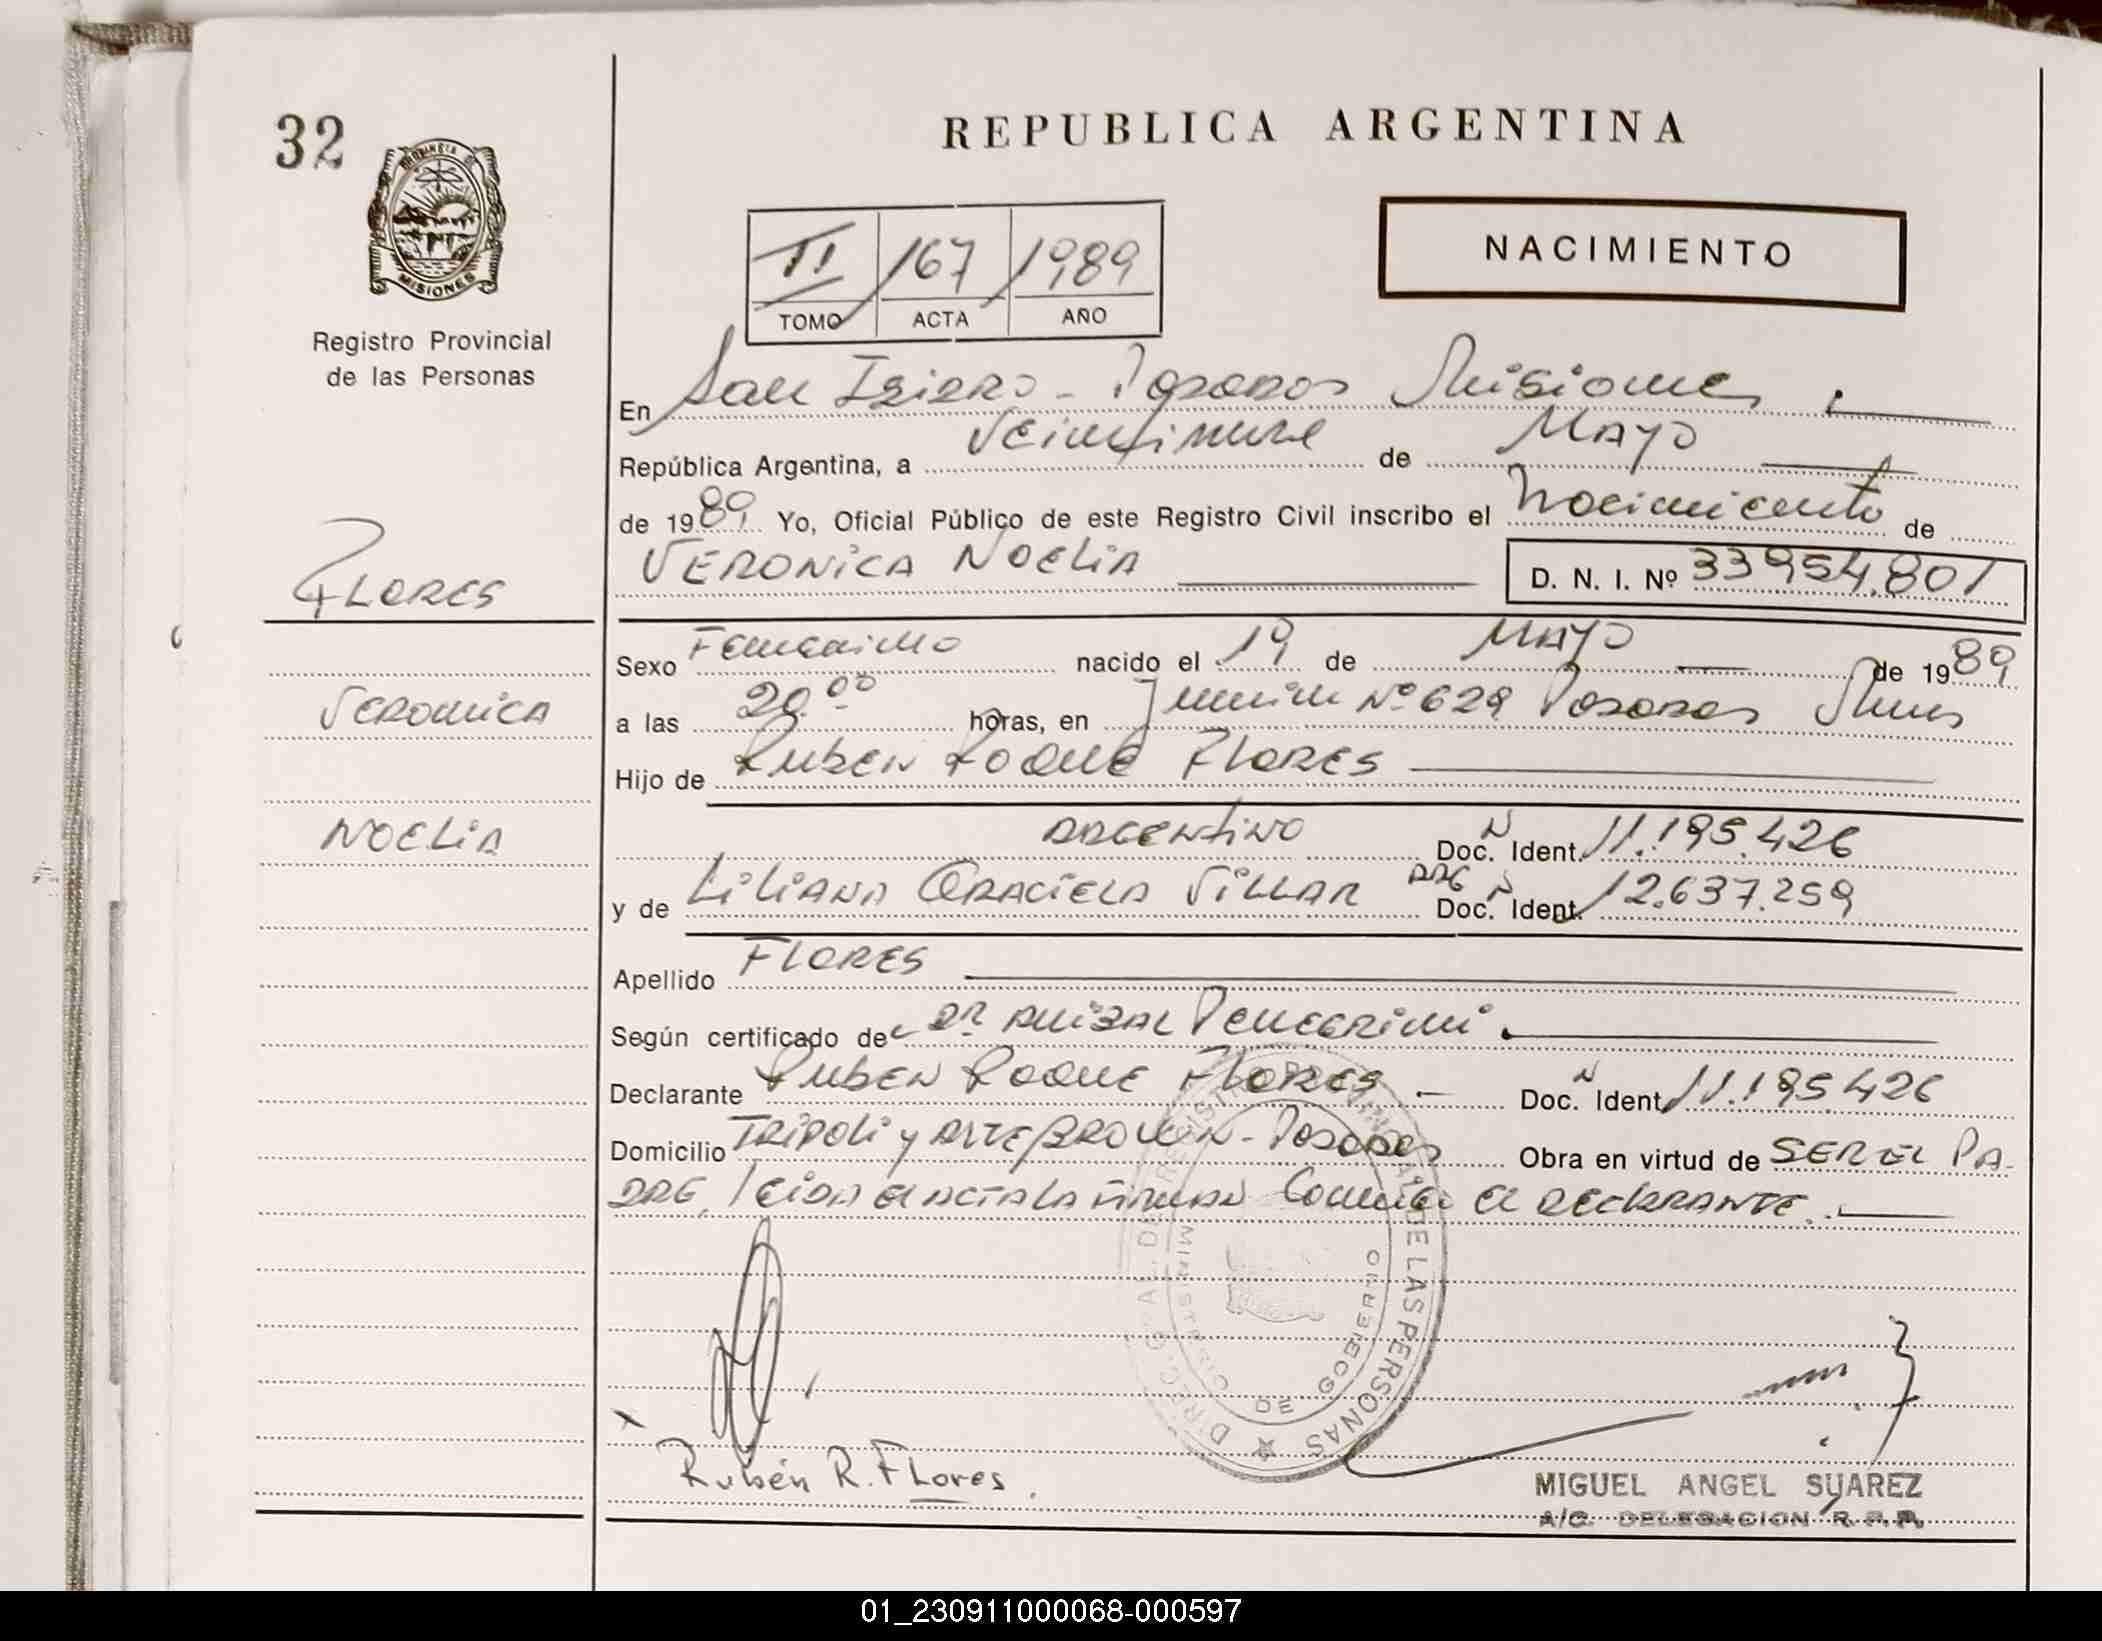 32
REPUBLICA ARGENTINA
PROVINCIA DE
MISIONES
Registro Provincial
de las Personas
NACIMIENTO
II 167 1989
TOMO ACTA AÑO
En San Isidro - Posadas Misiones.
República Argentina, a Veintinueve de Mayo
de 1989 Yo, Oficial Público de este Registro Civil inscribo el Nacimiento de
VERONICA NOELIA D. N. I. Nº 33954.801
FLORES
VERONICA
NOELIA
Sexo Femenino nacido el 19 de MAYO de 1989
a las 20.00 horas, en Junin Nº 629 Posadas Mnes
Hijo de Ruben Roque FLORES
ARGENTINO Doc. Ident. 11.195.426
y de LILIANA GRACIELA VILLAR ARG Doc. Ident. 12.637.259
Apellido FLORES
Según certificado de Dr Anibal
Declarante Ruben Roque FLORES Doc. Ident. 11.195.426
Domicilio TRIPOLI y ALTE BROWN - Posadas Obra en virtud de SER EL PA-
DRE, leida el acta la firman Conmigo el DECLARANTE.
DIREC. GRAL. DEL REGISTRO PROVINCIAL DE LAS PERSONAS
MINISTERIO DE GOBIERNO
x
Rubén R. Flores.
MIGUEL ANGEL SUAREZ
A/C. DELEGACION R. P. P.
01_230911000068-000597